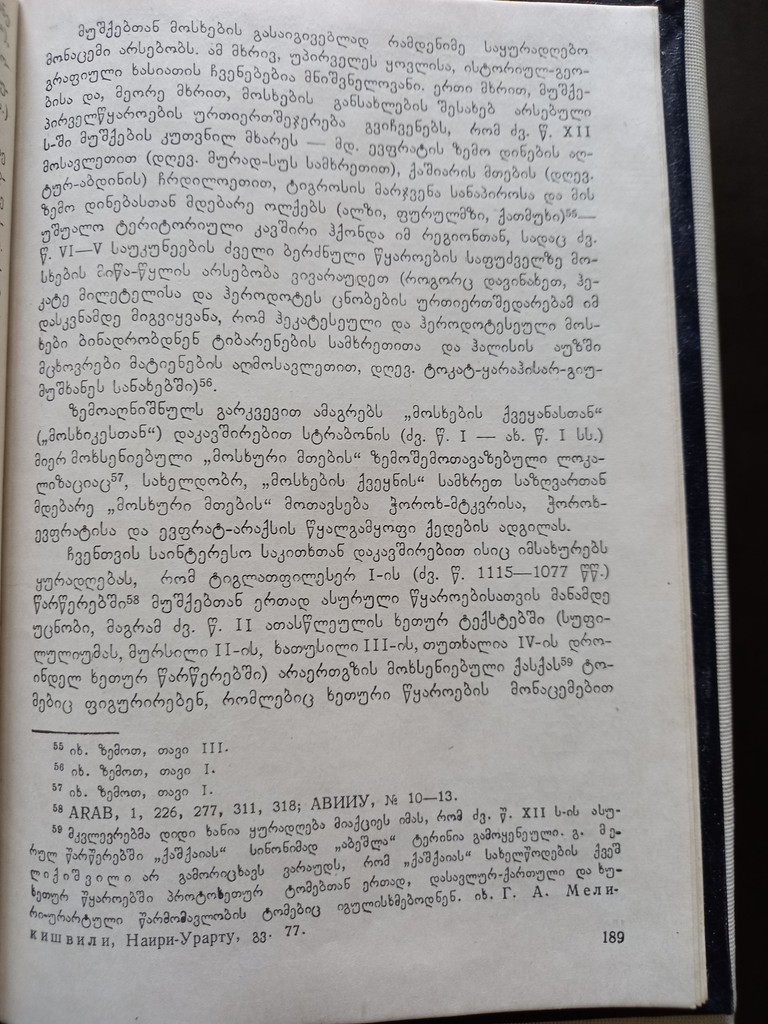 მუშქებთან მოსხების გასაიგივებლად რამდენიმე საყურადღებო
მონაცემი არსებობს. ამ მხრივ, უპირველეს ყოვლისა, ისტორიულ-გეო-
გრაფიული ხასიათის ჩვენებებია მნიშვნელოვანი. ერთი მხრით, მუშქე-
ბისა და, მეორე მხრით, მოსხების განსახლების შესახებ არსებული
პირველწყაროების ურთიერთშეჯერება გვიჩვენებს, რომ ძვ. წ. XII
ს-ში მუშქების კუთვნილ მხარეს — მდ. ევფრატის ზემო დინების აღ-
მოსავლეთით (დღევ. მურად-სუს სამხრეთით), ქაშიარის მთების (დღევ.
ტურ-აბდინის) ჩრდილოეთით, ტიგროსის მარჯვენა სანაპიროსა და მის
ზემო დინებასთან მდებარე ოლქებს (ალზი, ფურულმზი, ქათმუხი)⁵⁵—
უშუალო ტერიტორიული კავშირი ჰქონდა იმ რეგიონთან, სადაც ძვ.
წ. VI—V საუკუნეების ძველი ბერძნული წყაროების საფუძველზე მო-
სხების მიწა-წყლის არსებობა ვივარაუდეთ (როგორც დავინახეთ, ჰე-
კატე მილეტელისა და ჰეროდოტეს ცნობების ურთიერთშედარებამ იმ
დასკვნამდე მიგვიყვანა, რომ ჰეკატესეული და ჰეროდოტესეული მოს-
ხები ბინადრობდნენ ტიბარენების სამხრეთითა და ჰალისის აუზში
მცხოვრები მატიენების აღმოსავლეთით, დღევ. ტოკატ-ყარაჰისარ-გიუ-
მუშხანეს სანახებში)⁵⁶.
ზემოაღნიშნულს გარკვევით ამაგრებს „მოსხების ქვეყანასთან“
(„მოსხიკესთან“) დაკავშირებით სტრაბონის (ძვ. წ. I — ახ. წ. I სს.)
მიერ მოხსენიებული „მოსხური მთების“ ზემოშემოთავაზებული ლოკა-
ლიზაციაც⁵⁷, სახელდობრ, „მოსხების ქვეყნის“ სამხრეთ საზღვართან
მდებარე „მოსხური მთების“ მოთავსება ჭოროხ-მტკვრისა, ჭოროხ-
ევფრატისა და ევფრატ-არაქსის წყალგამყოფი ქედების ადგილას.
ჩვენთვის საინტერესო საკითხთან დაკავშირებით ისიც იმსახურებს
ყურადღებას, რომ ტიგლათფილესერ I-ის (ძვ. წ. 1115—1077 წწ.)
წარწერებში⁵⁸ მუშქებთან ერთად ასურული წყაროებისათვის მანამდე
უცნობი, მაგრამ ძვ. წ. II ათასწლეულის ხეთურ ტექსტებში (სუფი-
ლულიუმას, მურსილი II-ის, ხათუსილი III-ის, თუთხალია IV-ის დრო-
ინდელ ხეთურ წარწერებში) არაერთგზის მოხსენიებული ქასქას⁵⁹ ტო-
მებიც ფიგურირებენ, რომლებიც ხეთური წყაროების მონაცემებით
⁵⁵ იხ. ზემოთ, თავი III.
⁵⁶ იხ. ზემოთ, თავი I.
⁵⁷ იხ. ზემოთ, თავი I.
⁵⁸ ARAB, 1, 226, 277, 311, 318; АВИИУ, № 10—13.
⁵⁹ მკვლევრებმა დიდი ხანია ყურადღება მიაქციეს იმას, რომ ძვ. წ. XII ს-ის ასუ-
რულ წარწერებში „ქაშქაიას“ სინონიმად „აბეშლა“ ტერინია გამოყენეული. გ. მე-
ლიქიშვილი არ გამორიცხავს ვარაუდს, რომ „ქაშქაიას“ სახელწოდების ქვეშ
ხეთურ წყაროებში პროტოხეთურ ტომებთან ერთად, დასავლურ-ქართული და ხუ-
რი-ურარტული წარმომავლობის ტომებიც იგულისხმებოდნენ. იხ. Г. А. Мели-
кишвили, Наири-Урарту, გვ. 77.
189